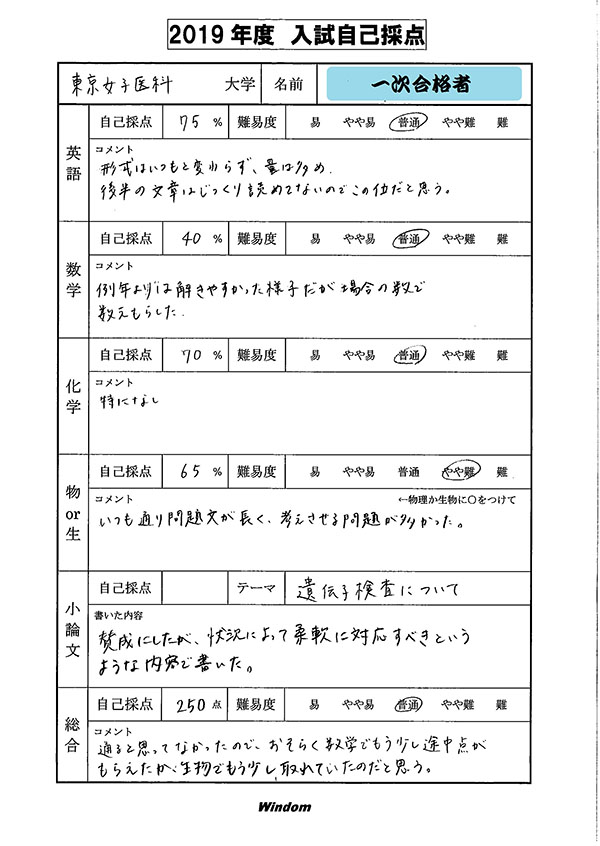 2019年度 入試自己採点
東京女子医科 大学 名前 一次合格者
英語 自己採点 75 % 難易度 易 やや易 普通 やや難 難
コメント
形式はいつもと変わらず、量は多め.
後半の文章はじっくり読めてないのでこの位だと思う。
数学 自己採点 40 % 難易度 易 やや易 普通 やや難 難
コメント
例年よりは解きやすかった様子だが場合の数で
数えもらした.
化学 自己採点 70 % 難易度 易 やや易 普通 やや難 難
コメント
特になし
物or生 自己採点 65 % 難易度 易 やや易 普通 やや難 難
コメント ←物理か生物に〇をつけて
いつも通り問題文が長く、考えさせる問題が多かった。
小論文 自己採点 テーマ 遺伝子検査について
書いた内容
賛成にしたが、状況によって柔軟に対応すべきという
ような内容で書いた。
総合 自己採点 250 点 難易度 易 やや易 普通 やや難 難
コメント
通ると思ってなかったので、おそらく数学でもう少し途中点が
もらえたか、生物でもう少し取れていたのだと思う。
Windom